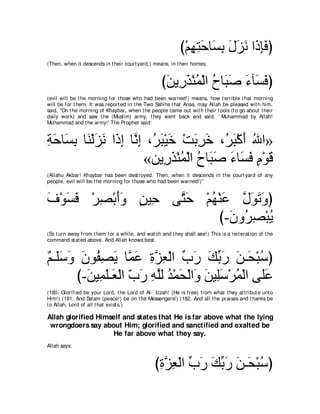 (فَإِذَا نَزَلَ بِسَاحَتِهِمْ)
(Then, when it descends in their courtyard,) means, in their homes,
(فَسَآءَ صَبَاحُ الْمُنْذَرِينَ)
(evil will be the morning for those who had been warned!) means, how terrible that morning
will be for them. It was reported in the Two Sahihs that Anas, may Allah be pleased with him,
said, "On the morning of Khaybar, when the people came out with their tools (to go about their
daily work) and saw the (Muslim) army, they went back and said, ` Muhammad by Allah!
Muhammad and the army!' The Prophet said:
«اللهُ أَكْبَرُ، خَرِبَتْ خَيْبَرُ، إِنَّا إِذَا نَزَلْنَا بِسَاحَةِ
قَوْمٍ فَسَاءَ صَبَاحُ الْمُنْذَرِين»
(Allahu Akbar! Khaybar has been destroyed. Then, when it descends in the courtyard of any
people, evil will be the morning for those who had been warned!)"
(وَتَوَلَّ عَنْهُمْ حَتَّى حِينٍ وَأَبْصِرْ فَسَوْفَ
يُبْصِرُونَ-)
(So turn away from them for a while, and watch and they shall see!) This is a reiteration of the
command stated above. And Allah knows best.
(سُبْحَـنَ رَبِّكَ رَبِّ الْعِزَّةِ عَمَّا يَصِفُونَ وَسَلَـمٌ
عَلَى الْمُرْسَلِينَ وَالْحَمْدُ لِلَّهِ رَبِّ الْعَـلَمِينَ-)
(180. Glorified be your Lord, the Lord of Al-`Izzah! (He is free) from what they attribute unto
Him!) (181. And Salam (peace!) be on the Messengers!) (182. And all the praises and thanks be
to Allah, Lord of all that exists.)
Allah glorified Himself and states that He is far above what the lying
wrongdoers say about Him; glorified and sanctified and exalted be
He far above what they say.
Allah says:
(سُبْحَـنَ رَبِّكَ رَبِّ الْعِزَّةِ)